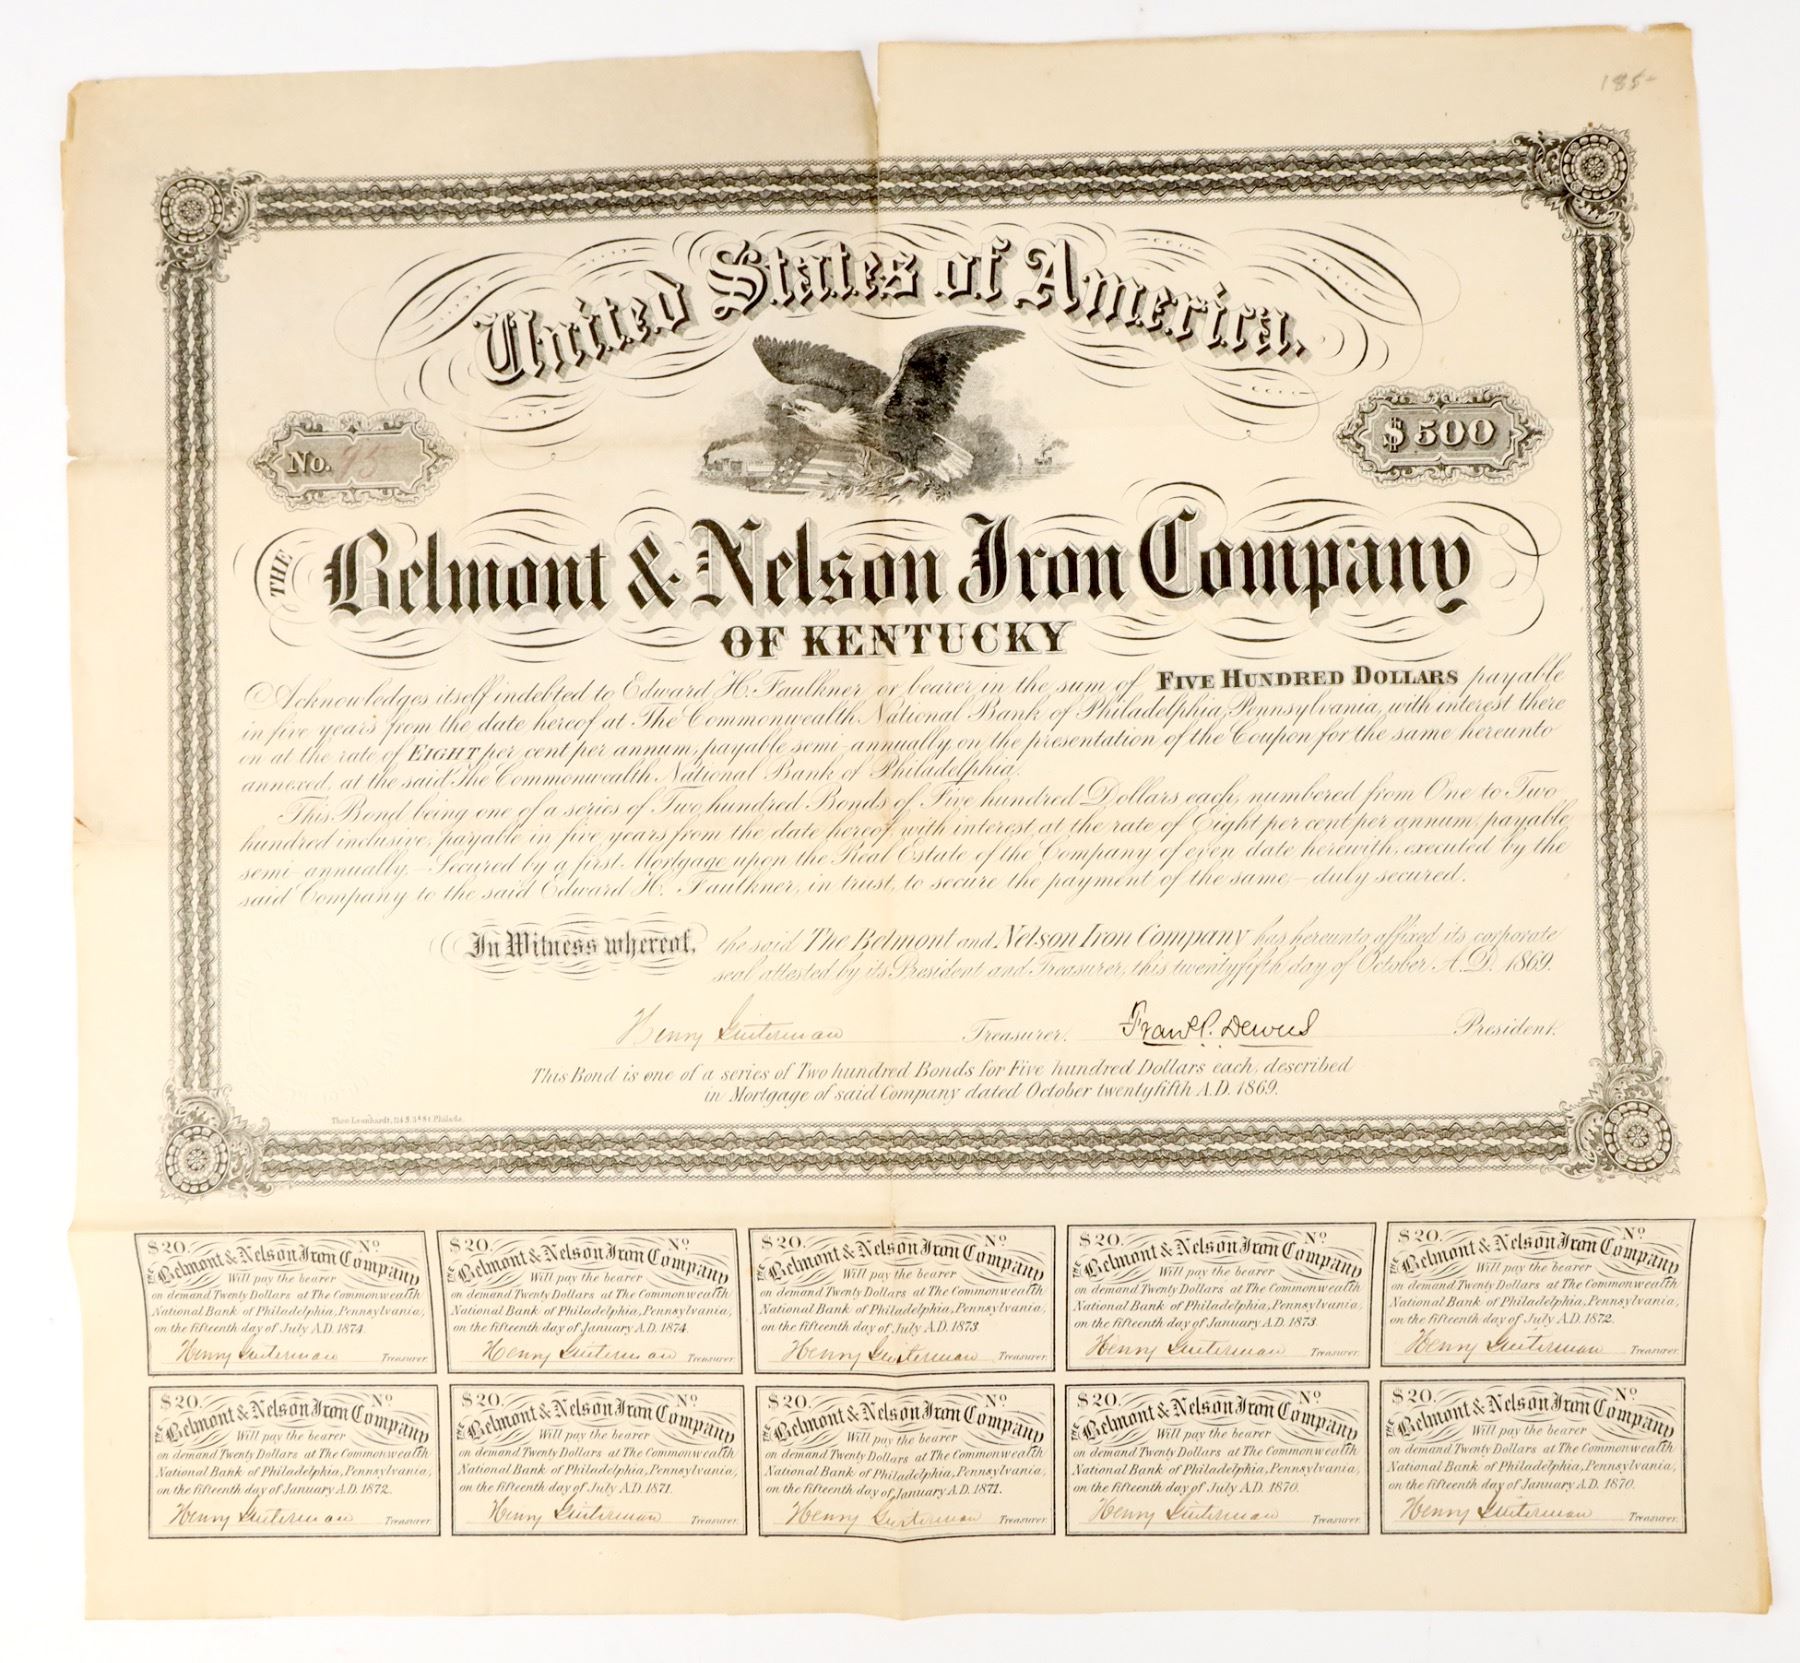 185-
United States of America.
No. 95
$500
THE Belmont & Nelson Iron Company
OF KENTUCKY
Acknowledges itself indebted to Edward H. Faulkner, or bearer, in the sum of FIVE HUNDRED DOLLARS payable
in five years from the date hereof at The Commonwealth National Bank of Philadelphia, Pennsylvania, with interest there
on at the rate of EIGHT per cent per annum, payable semi-annually, on the presentation of the Coupon for the same hereunto
annexed, at the said The Commonwealth National Bank of Philadelphia.
This Bond being one of a series of Two hundred Bonds of Five hundred Dollars each, numbered from One to Two
hundred inclusive, payable in five years from the date hereof, with interest at the rate of Eight per cent per annum, payable
semi-annually,- Secured by a first Mortgage upon the Real Estate of the Company of even date herewith, executed by the
said Company to the said Edward H. Faulkner, in trust, to secure the payment of the same,- duly secured.
In Witness whereof, the said The Belmont and Nelson Iron Company has hereunto affixed its corporate
seal attested by its President and Treasurer, this twentyfifth day of October A.D. 1869.
Henry Treasurer. President.
This Bond is one of a series of Two hundred Bonds for Five hundred Dollars each, described
in Mortgage of said Company dated October twentyfifth A.D. 1869.
Theo. Leonhardt, 114 S. 3d St. Philada.
$20. No
The Belmont & Nelson Iron Company
Will pay the bearer
on demand Twenty Dollars at The Commonwealth
National Bank of Philadelphia, Pennsylvania,
on the fifteenth day of July A.D. 1874.
Henry Treasurer.
$20. No
The Belmont & Nelson Iron Company
Will pay the bearer
on demand Twenty Dollars at The Commonwealth
National Bank of Philadelphia, Pennsylvania,
on the fifteenth day of January A.D. 1874.
Henry Treasurer.
$20. No
The Belmont & Nelson Iron Company
Will pay the bearer
on demand Twenty Dollars at The Commonwealth
National Bank of Philadelphia, Pennsylvania,
on the fifteenth day of July A.D. 1873.
Henry Treasurer.
$20. No
The Belmont & Nelson Iron Company
Will pay the bearer
on demand Twenty Dollars at The Commonwealth
National Bank of Philadelphia, Pennsylvania,
on the fifteenth day of January A.D. 1873.
Henry Treasurer.
$20. No
The Belmont & Nelson Iron Company
Will pay the bearer
on demand Twenty Dollars at The Commonwealth
National Bank of Philadelphia, Pennsylvania,
on the fifteenth day of July A.D. 1872.
Henry Treasurer.
$20. No
The Belmont & Nelson Iron Company
Will pay the bearer
on demand Twenty Dollars at The Commonwealth
National Bank of Philadelphia, Pennsylvania,
on the fifteenth day of January A.D. 1872.
Henry Treasurer.
$20. No
The Belmont & Nelson Iron Company
Will pay the bearer
on demand Twenty Dollars at The Commonwealth
National Bank of Philadelphia, Pennsylvania,
on the fifteenth day of July A.D. 1871.
Henry Treasurer.
$20. No
The Belmont & Nelson Iron Company
Will pay the bearer
on demand Twenty Dollars at The Commonwealth
National Bank of Philadelphia, Pennsylvania,
on the fifteenth day of January A.D. 1871.
Henry Treasurer.
$20. No
The Belmont & Nelson Iron Company
Will pay the bearer
on demand Twenty Dollars at The Commonwealth
National Bank of Philadelphia, Pennsylvania,
on the fifteenth day of July A.D. 1870.
Henry Treasurer.
$20. No
The Belmont & Nelson Iron Company
Will pay the bearer
on demand Twenty Dollars at The Commonwealth
National Bank of Philadelphia, Pennsylvania,
on the fifteenth day of January A.D. 1870.
Henry Treasurer.